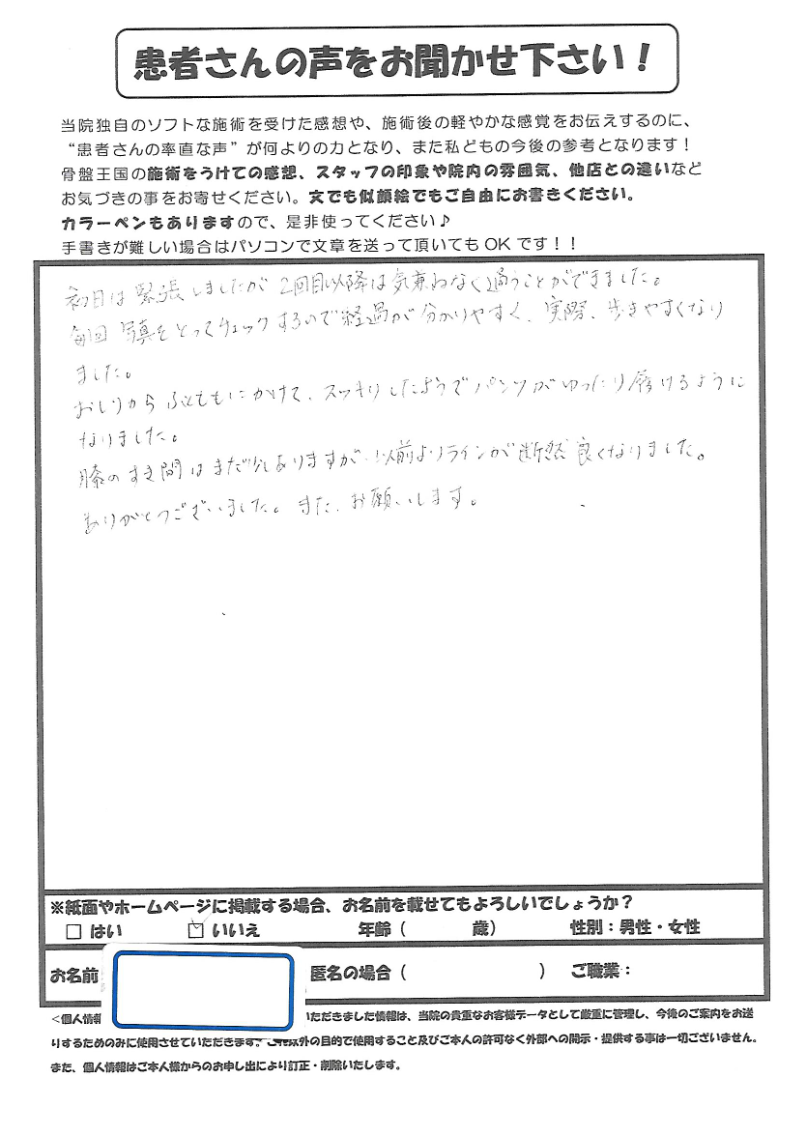 患者さんの声をお聞かせ下さい！
当院独自のソフトな施術を受けた感想や、施術後の軽やかな感覚をお伝えするのに、
“患者さんの率直な声”が何よりの力となり、また私どもの今後の参考となります！
骨盤王国の施術をうけての感想、スタッフの印象や院内の雰囲気、他店との違いなど
お気づきの事をお寄せください。文でも似顔絵でもご自由にお書きください。
カラーペンもありますので、是非使ってください♪
手書きが難しい場合はパソコンで文章を送って頂いてもOKです！！
初日は緊張しましたが2回目以降は気兼ねなく通うことができました。
毎回写真をとってチェックするので経過が分かりやすく、実際、歩きやすくなり
ました。
おしりからふとももにかけて、スッキリしたようでパンツがゆったり履けるように
なりました。
膝のすき間はまだ少しありますが、以前よりラインが断然良くなりました。
ありがとうございました。また、お願いします。
※紙面やホームページに掲載する場合、お名前を載せてもよろしいでしょうか？
□ はい ☑ いいえ 年齢（ 歳） 性別：男性・女性
お名前 匿名の場合（ ） ご職業：
＜個人情 いただきました情報は、当院の貴重なお客様データとして厳重に管理し、今後のご案内をお送
りするためのみに使用させていただきます。これ以外の目的で使用すること及びご本人の許可なく外部への開示・提供する事は一切ございません。
また、個人情報はご本人様からのお申し出により訂正・削除いたします。